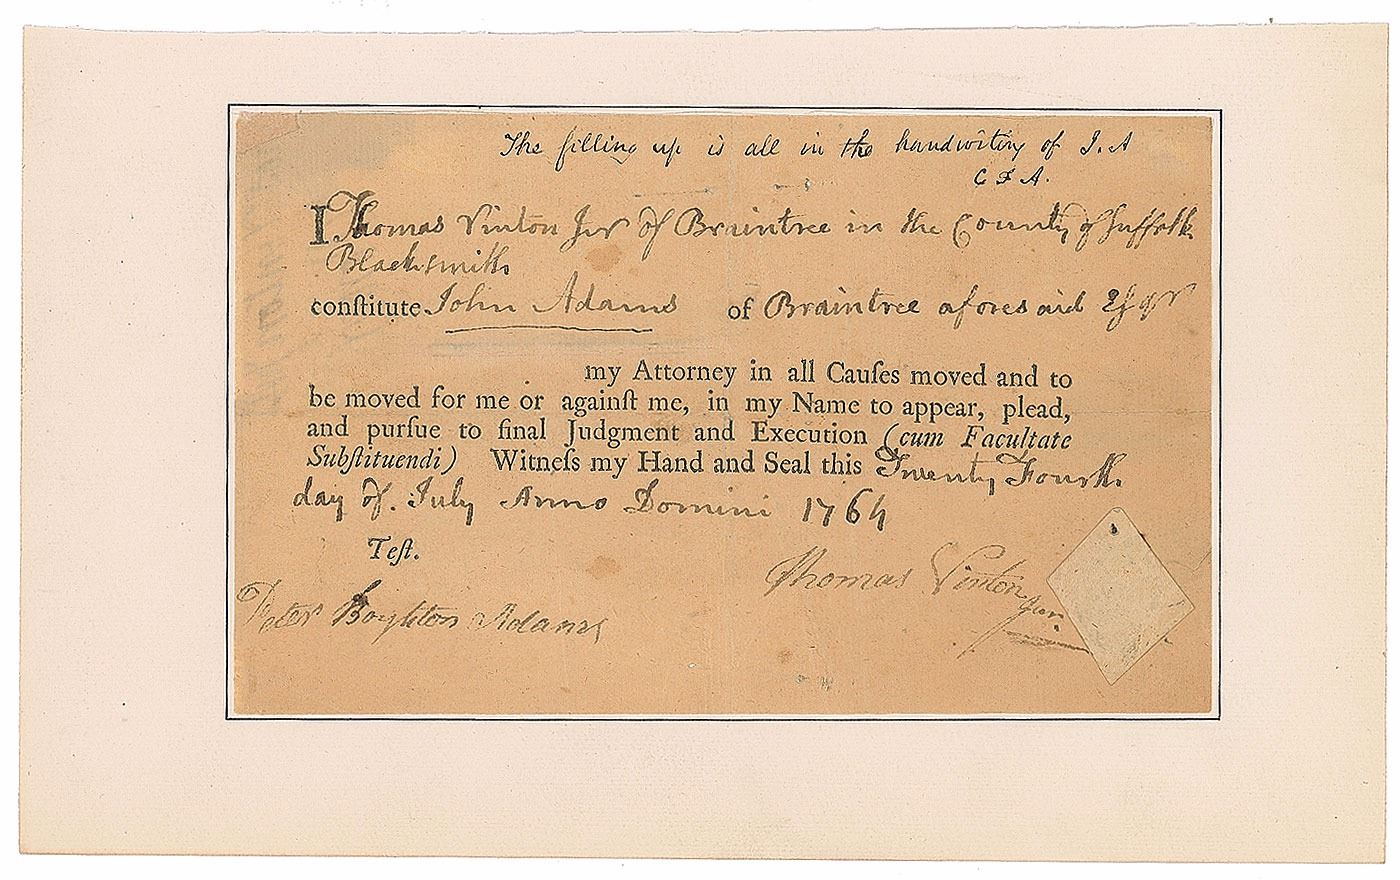 The filling up is all in the handwriting of J. A
C F A.
I Thomas Vinton Junr of Braintree in the County of Suffolk
Blacksmith
conſtitute John Adams of Braintree aforesaid Esqr
my Attorney in all Cauſes moved and to
be moved for me or againſt me, in my Name to appear, plead,
and purſue to final Judgment and Execution (cum Facultate
Subſtituendi) Witneſs my Hand and Seal this Twenty Fourth
day of July Anno Domini 1764
Teſt.
Thomas Vinton
Jun
Peter Boylston Adams